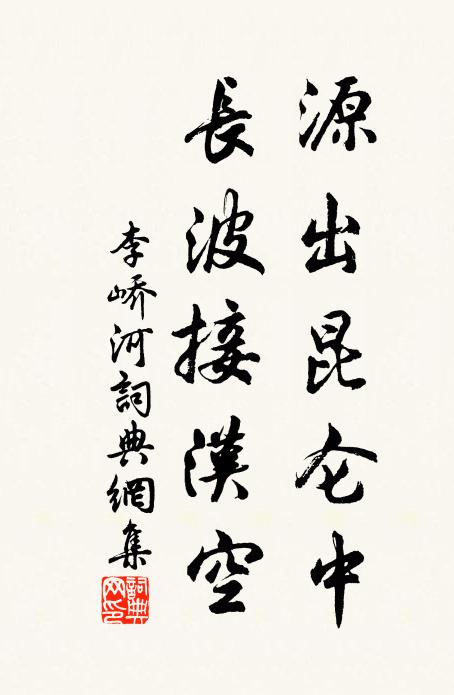 源出昆仑中
長波接漢空
李嶠河詞典網集
詞典网印